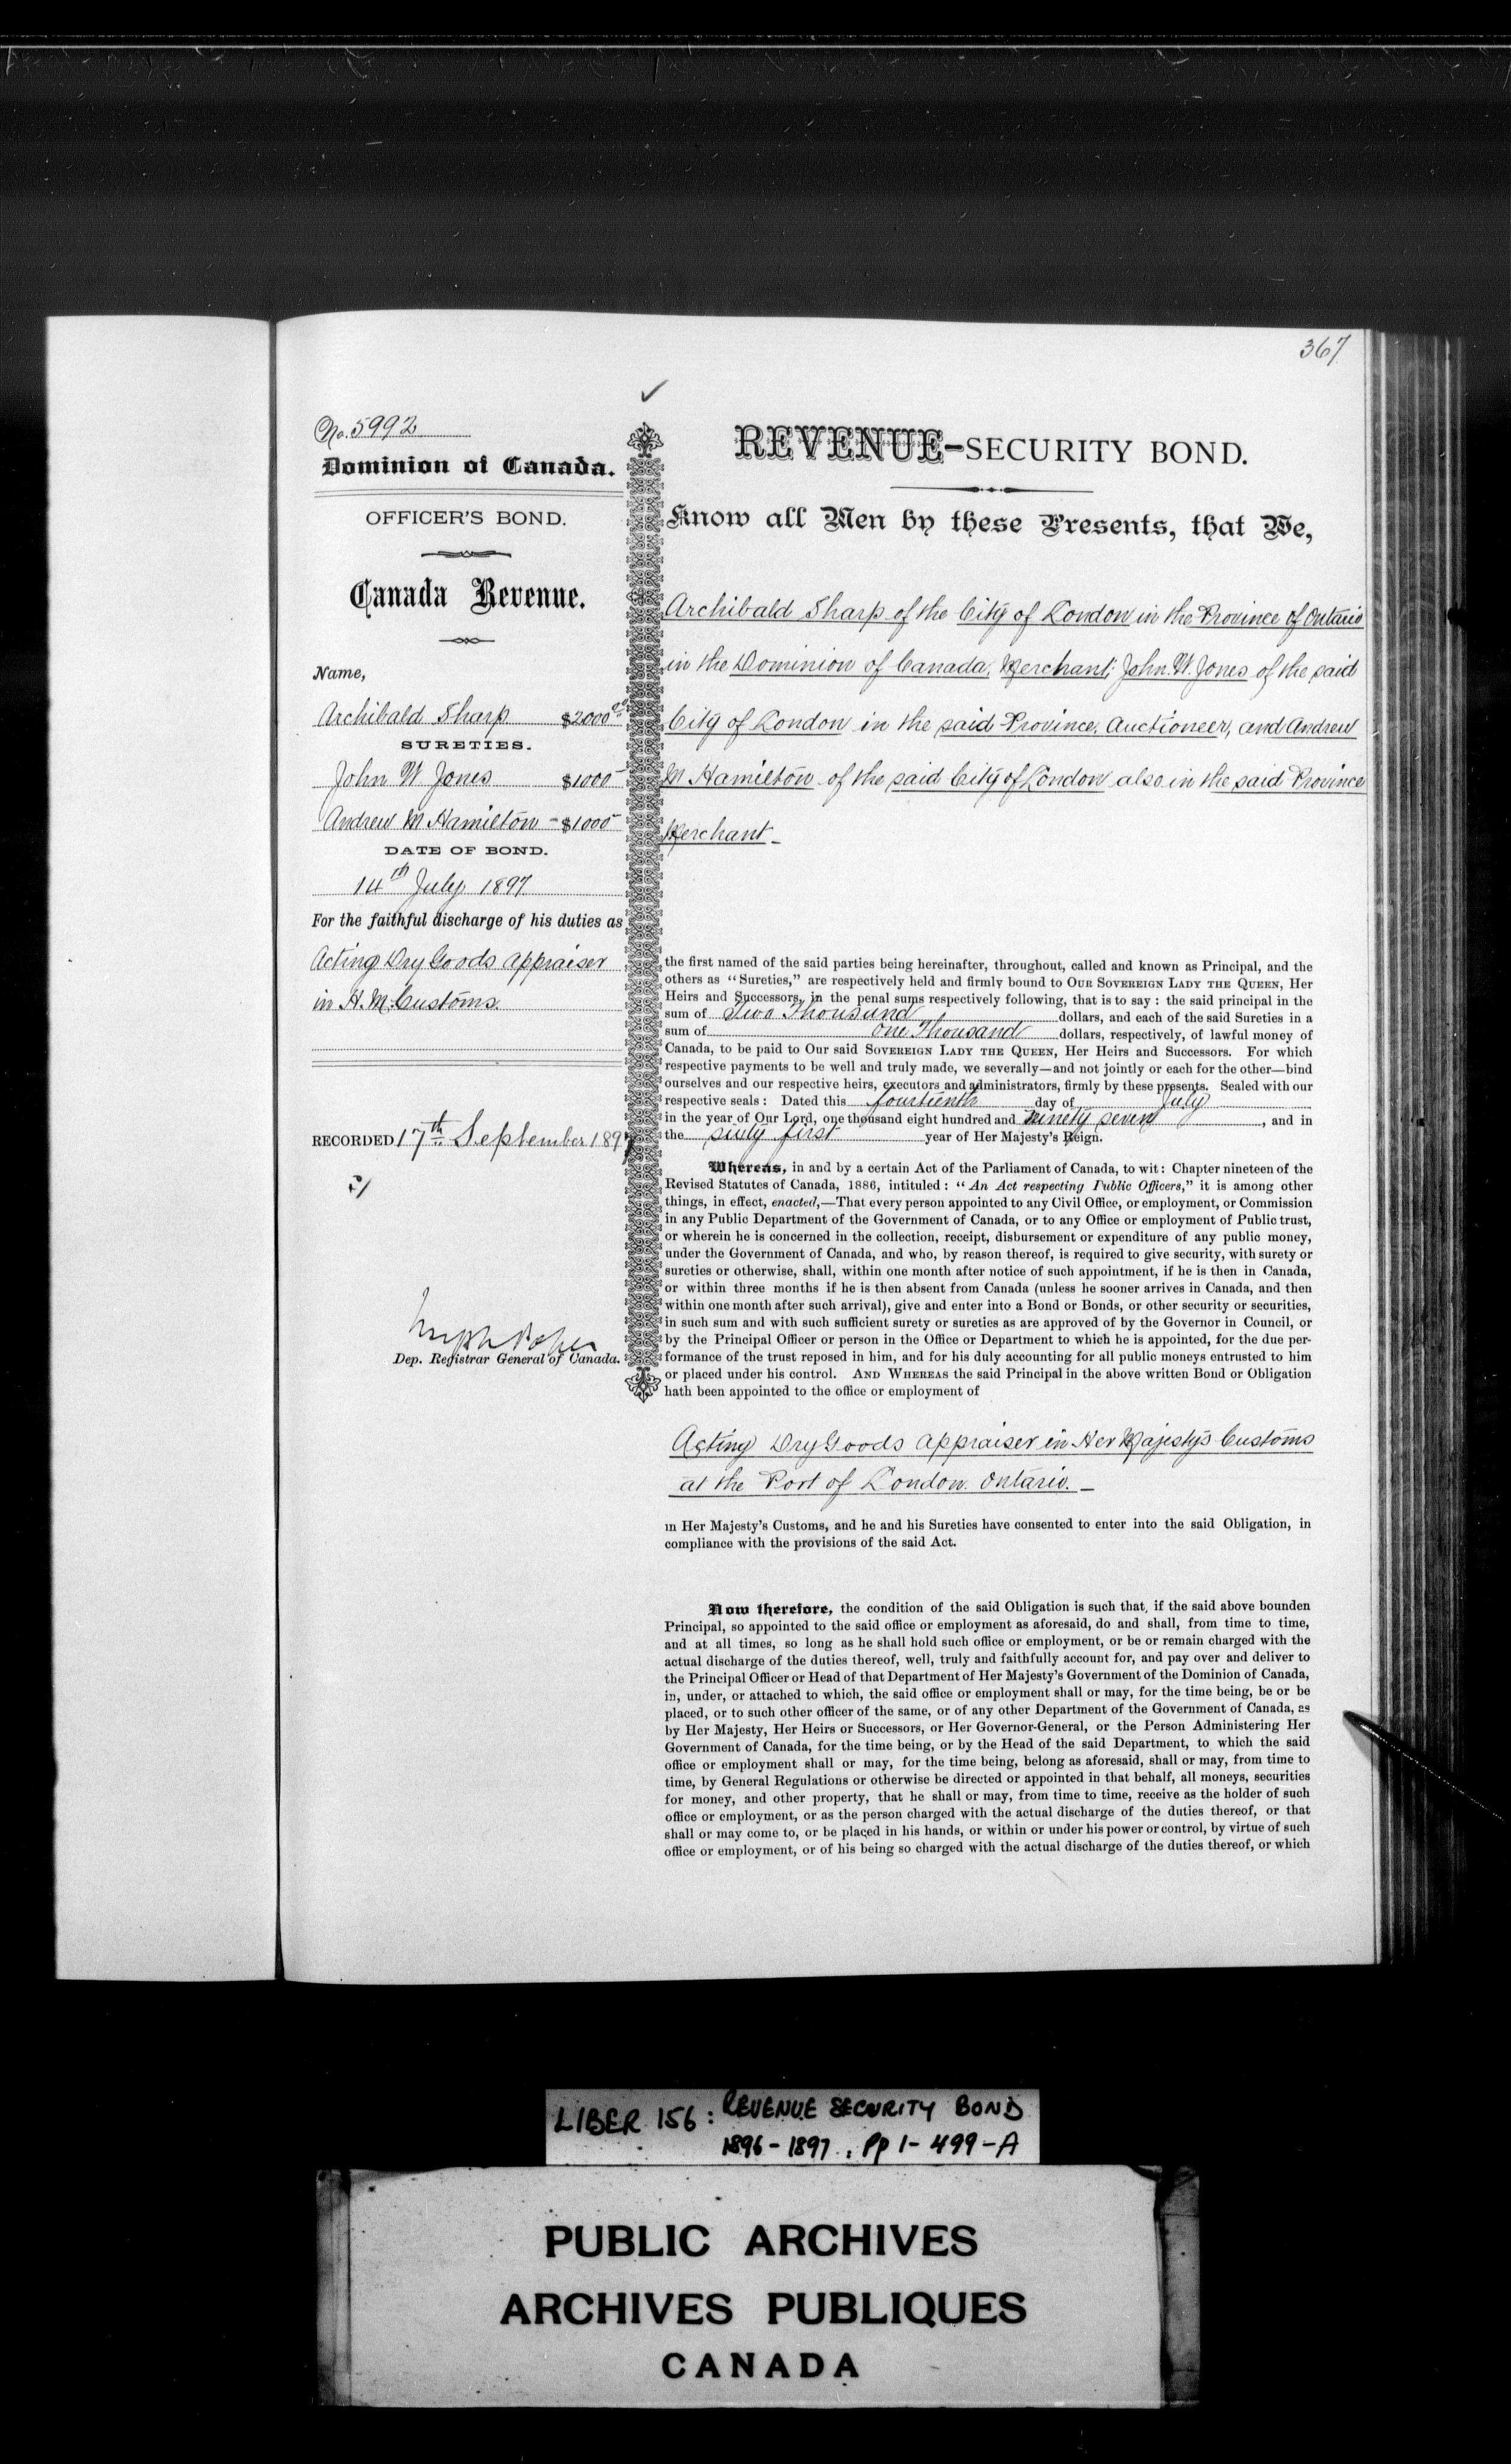 367
No. 5992
Dominion of Canada.
OFFICER'S BOND.
Canada Revenue.
Name,
Archibald Sharp $2000.00
SURETIES.
John W. Jones $1000
Andrew M Hamilton - $1000
DATE OF BOND.
14th July 1897
For the faithful discharge of his duties as
Acting Dry Goods Appraiser
in H. M. Customs.
RECORDED 17th September 1897
Dep. Registrar General of Canada.
REVENUE-SECURITY BOND.
Know all Men by these Presents, that We,
Archibald Sharp of the City of London in the Province of Ontario
in the Dominion of Canada, Merchant; John W. Jones of the said
City of London in the said Province, Auctioneer, and Andrew
M Hamilton of the said City of London also in the said Province
Merchant -
the first named of the said parties being hereinafter, throughout, called and known as Principal, and the
others as "Sureties," are respectively held and firmly bound to OUR SOVEREIGN LADY THE QUEEN, Her
Heirs and Successors, in the penal sums respectively following, that is to say : the said principal in the
sum of Two Thousand dollars, and each of the said Sureties in a
sum of One Thousand dollars, respectively, of lawful money of
Canada, to be paid to Our said SOVEREIGN LADY THE QUEEN, Her Heirs and Successors. For which
respective payments to be well and truly made, we severally—and not jointly or each for the other—bind
ourselves and our respective heirs, executors and administrators, firmly by these presents. Sealed with our
respective seals : Dated this fourteenth day of July
in the year of Our Lord, one thousand eight hundred and ninety seven, and in
the sixty first year of Her Majesty's Reign.
Whereas, in and by a certain Act of the Parliament of Canada, to wit: Chapter nineteen of the
Revised Statutes of Canada, 1886, intituled : "An Act respecting Public Officers," it is among other
things, in effect, enacted,—That every person appointed to any Civil Office, or employment, or Commission
in any Public Department of the Government of Canada, or to any Office or employment of Public trust,
or wherein he is concerned in the collection, receipt, disbursement or expenditure of any public money,
under the Government of Canada, and who, by reason thereof, is required to give security, with surety or
sureties or otherwise, shall, within one month after notice of such appointment, if he is then in Canada,
or within three months if he is then absent from Canada (unless he sooner arrives in Canada, and then
within one month after such arrival), give and enter into a Bond or Bonds, or other security or securities,
in such sum and with such sufficient surety or sureties as are approved of by the Governor in Council, or
by the Principal Officer or person in the Office or Department to which he is appointed, for the due per-
formance of the trust reposed in him, and for his duly accounting for all public moneys entrusted to him
or placed under his control. AND WHEREAS the said Principal in the above written Bond or Obligation
hath been appointed to the office or employment of
Acting Dry Goods Appraiser in Her Majesty's Customs
at the Port of London. Ontario. -
in Her Majesty's Customs, and he and his Sureties have consented to enter into the said Obligation, in
compliance with the provisions of the said Act.
Now therefore, the condition of the said Obligation is such that, if the said above bounden
Principal, so appointed to the said office or employment as aforesaid, do and shall, from time to time,
and at all times, so long as he shall hold such office or employment, or be or remain charged with the
actual discharge of the duties thereof, well, truly and faithfully account for, and pay over and deliver to
the Principal Officer or Head of that Department of Her Majesty's Government of the Dominion of Canada,
in, under, or attached to which, the said office or employment shall or may, for the time being, be or be
placed, or to such other officer of the same, or of any other Department of the Government of Canada, as
by Her Majesty, Her Heirs or Successors, or Her Governor-General, or the Person Administering Her
Government of Canada, for the time being, or by the Head of the said Department, to which the said
office or employment shall or may, for the time being, belong as aforesaid, shall or may, from time to
time, by General Regulations or otherwise be directed or appointed in that behalf, all moneys, securities
for money, and other property, that he shall or may, from time to time, receive as the holder of such
office or employment, or as the person charged with the actual discharge of the duties thereof, or that
shall or may come to, or be placed in his hands, or within or under his power or control, by virtue of such
office or employment, or of his being so charged with the actual discharge of the duties thereof, or which
LIBER 156: REVENUE SECURITY BOND
1896-1897. Pp 1-499-A
PUBLIC ARCHIVES
ARCHIVES PUBLIQUES
CANADA